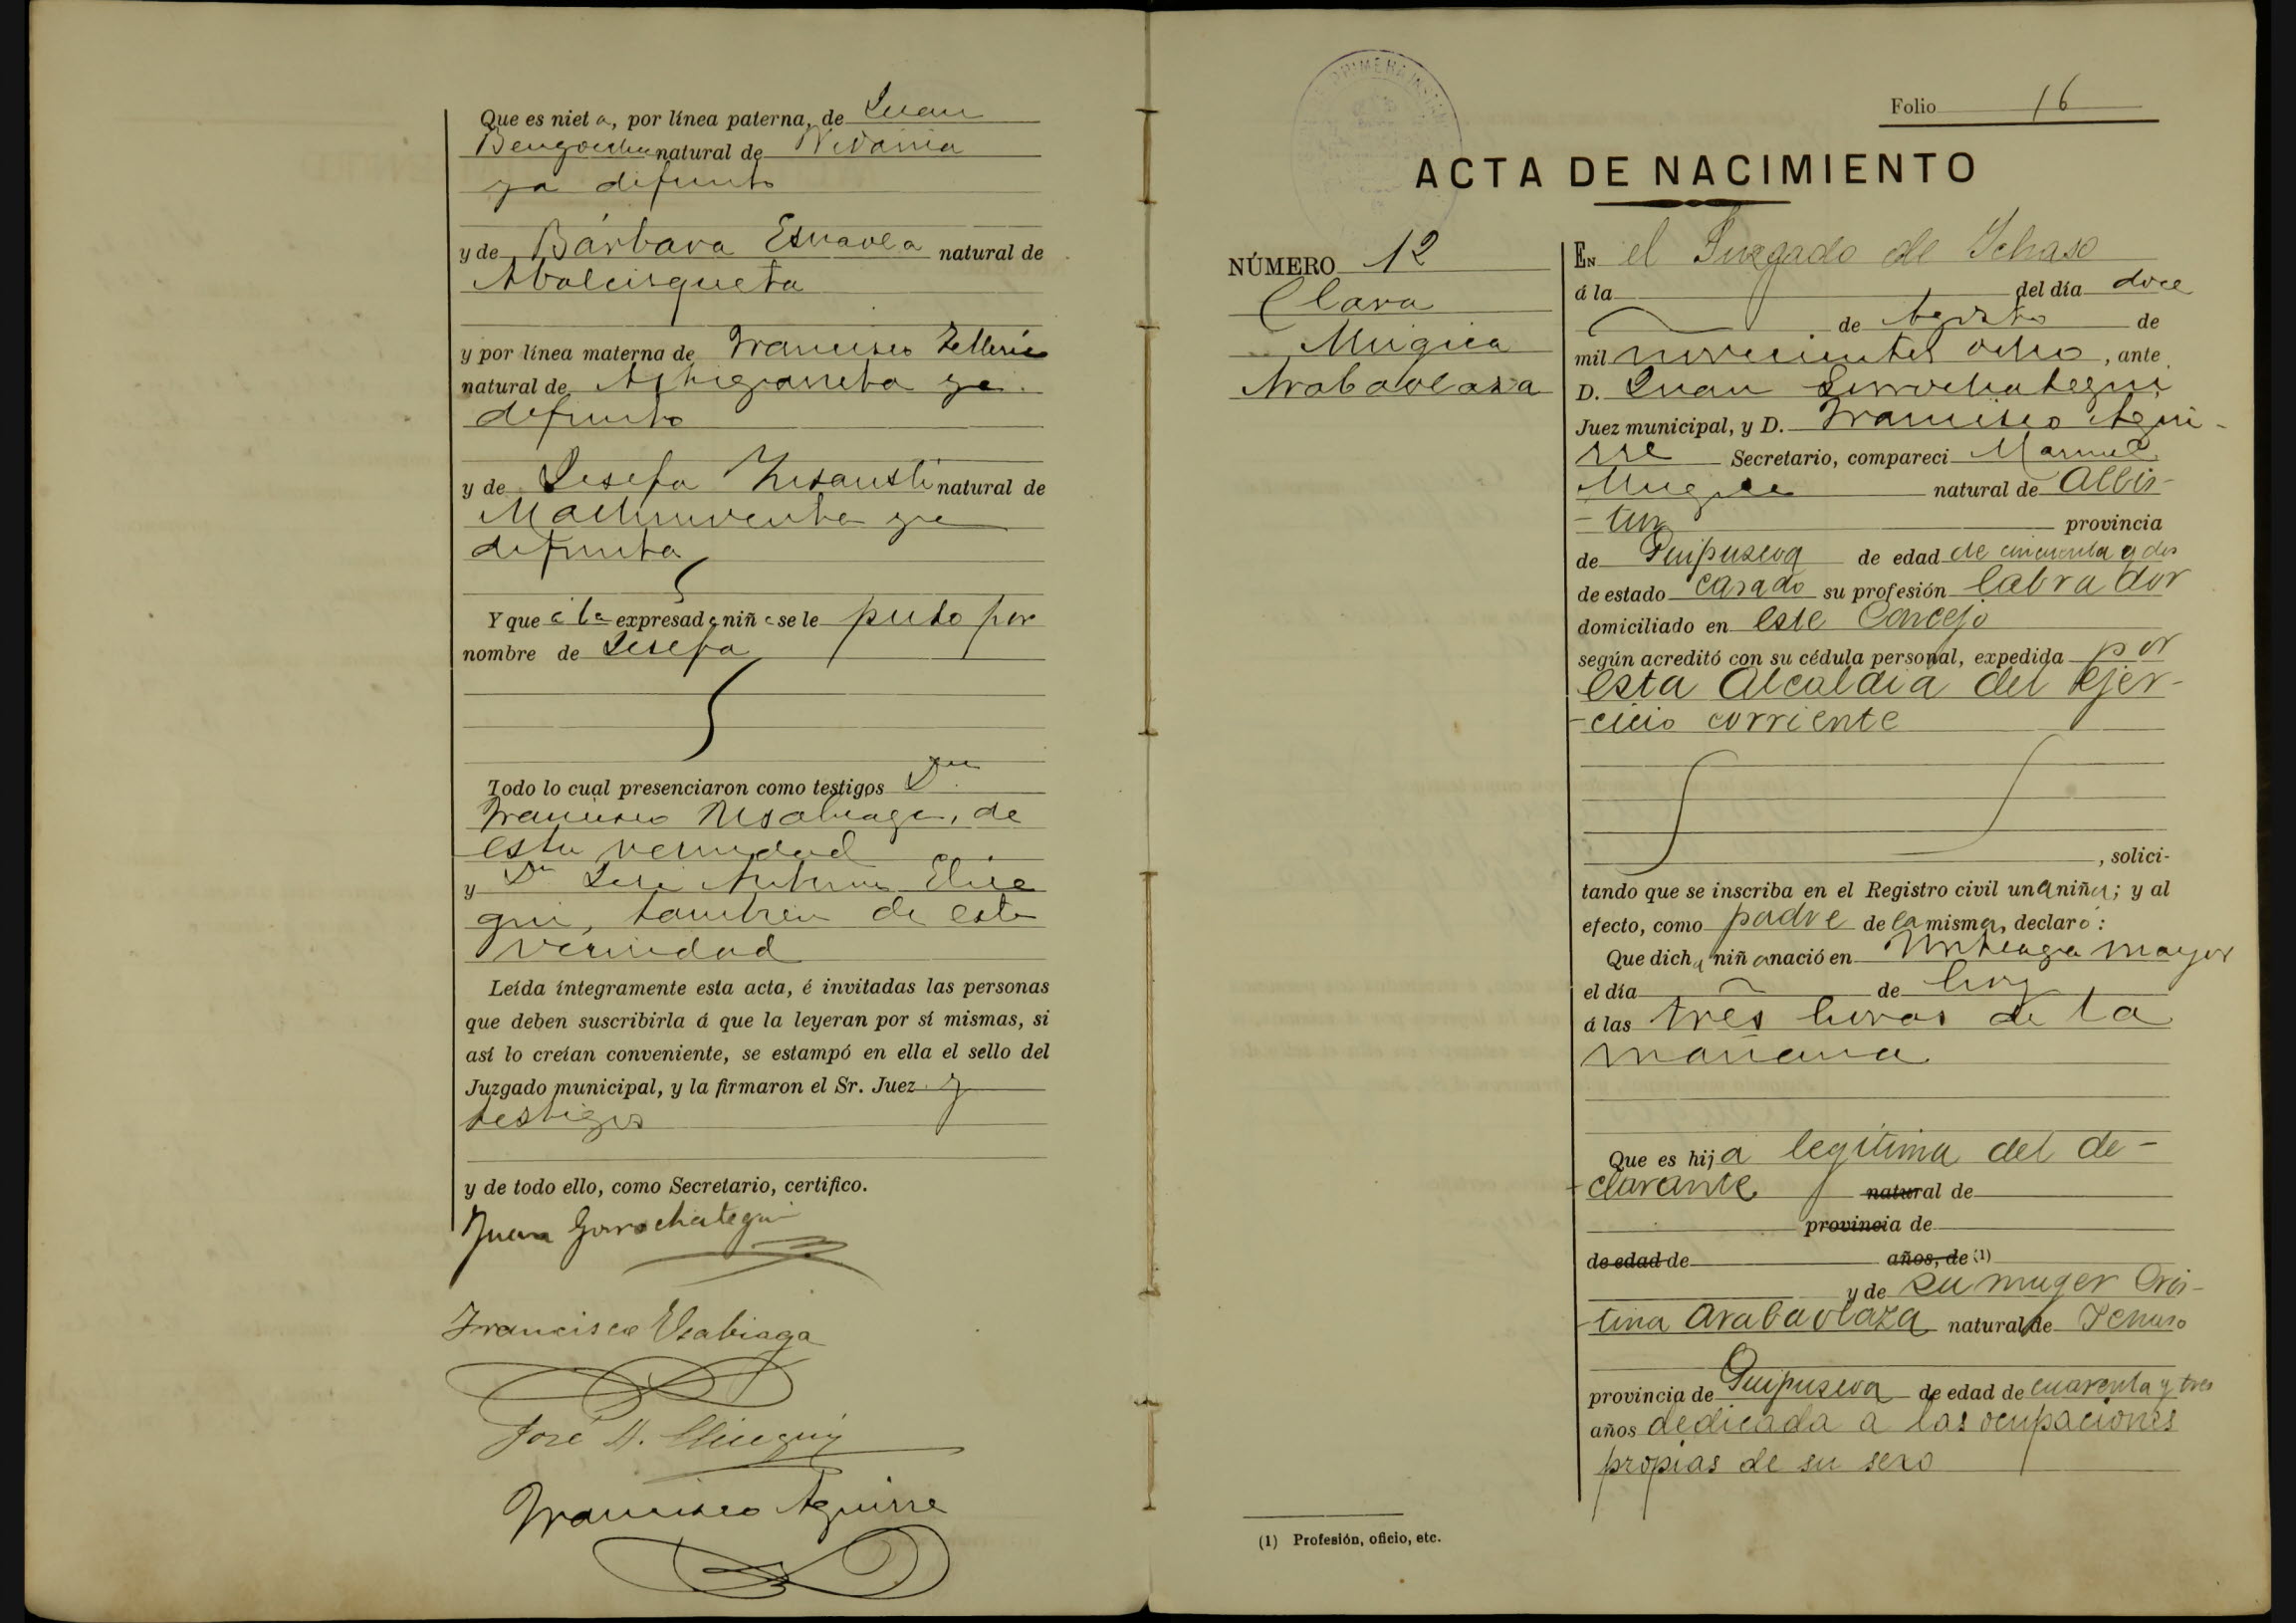 Que es nieta, por línea paterna, de Juan
Bengoechea natural de Vidania
ya difunto
y de Bárbara Esnaola natural de
Abalcisqueta
y por línea materna de Francisco Telleria
natural de Astigarreta ya
difunto
y de Josefa Insausti natural de
Machinventa ya
difunta
Y que á la expresada niña se le puso por
nombre de Josefa
Todo lo cual presenciaron como testigos Dn
Francisco Usabiaga, de
esta vecindad
y Dn José Antonio Elice
gui, tambien de esta
vecindad
Leída íntegramente esta acta, é invitadas las personas
que deben suscribirla á que la leyeran por sí mismas, si
así lo creían conveniente, se estampó en ella el sello del
Juzgado municipal, y la firmaron el Sr. Juez y
testigos
y de todo ello, como Secretario, certifico.
Juan Gorrochategui
Francisco Usabiaga
José A. Elicegui
Francisco Aguirre
PRIMERA
Folio 16
ACTA DE NACIMIENTO
NÚMERO 12
Clara
Mugica
Arabaolaza
EN el Juzgado de Ichaso
á la del día doce
de Agosto de
mil novecientos ocho, ante
D. Juan Gorrochategui
Juez municipal, y D. Francisco Agui-
rre Secretario, compareci Manuel
Mugica natural de Albis-
-tur provincia
de Guipuzcoa de edad de cincuenta y dos
de estado casado su profesión labrador
domiciliado en este Concejo
según acreditó con su cédula personal, expedida por
esta Alcaldia del ejer-
-cicio corriente
, solici-
tando que se inscriba en el Registro civil una niña; y al
efecto, como padre de la misma, declaró:
Que dicha niña nació en Urteaga mayor
el día de hoy
á las tres horas de la
mañana
Que es hija legitima del de-
-clarante natural de
provincia de
de edad de años, de (1)
y de su muger Cris-
-tina Arabaolaza natural de Ichaso
provincia de Guipuzcoa de edad de cuarenta y tres
años dedicada a las ocupaciones
propias de su sexo
(1) Profesión, oficio, etc.